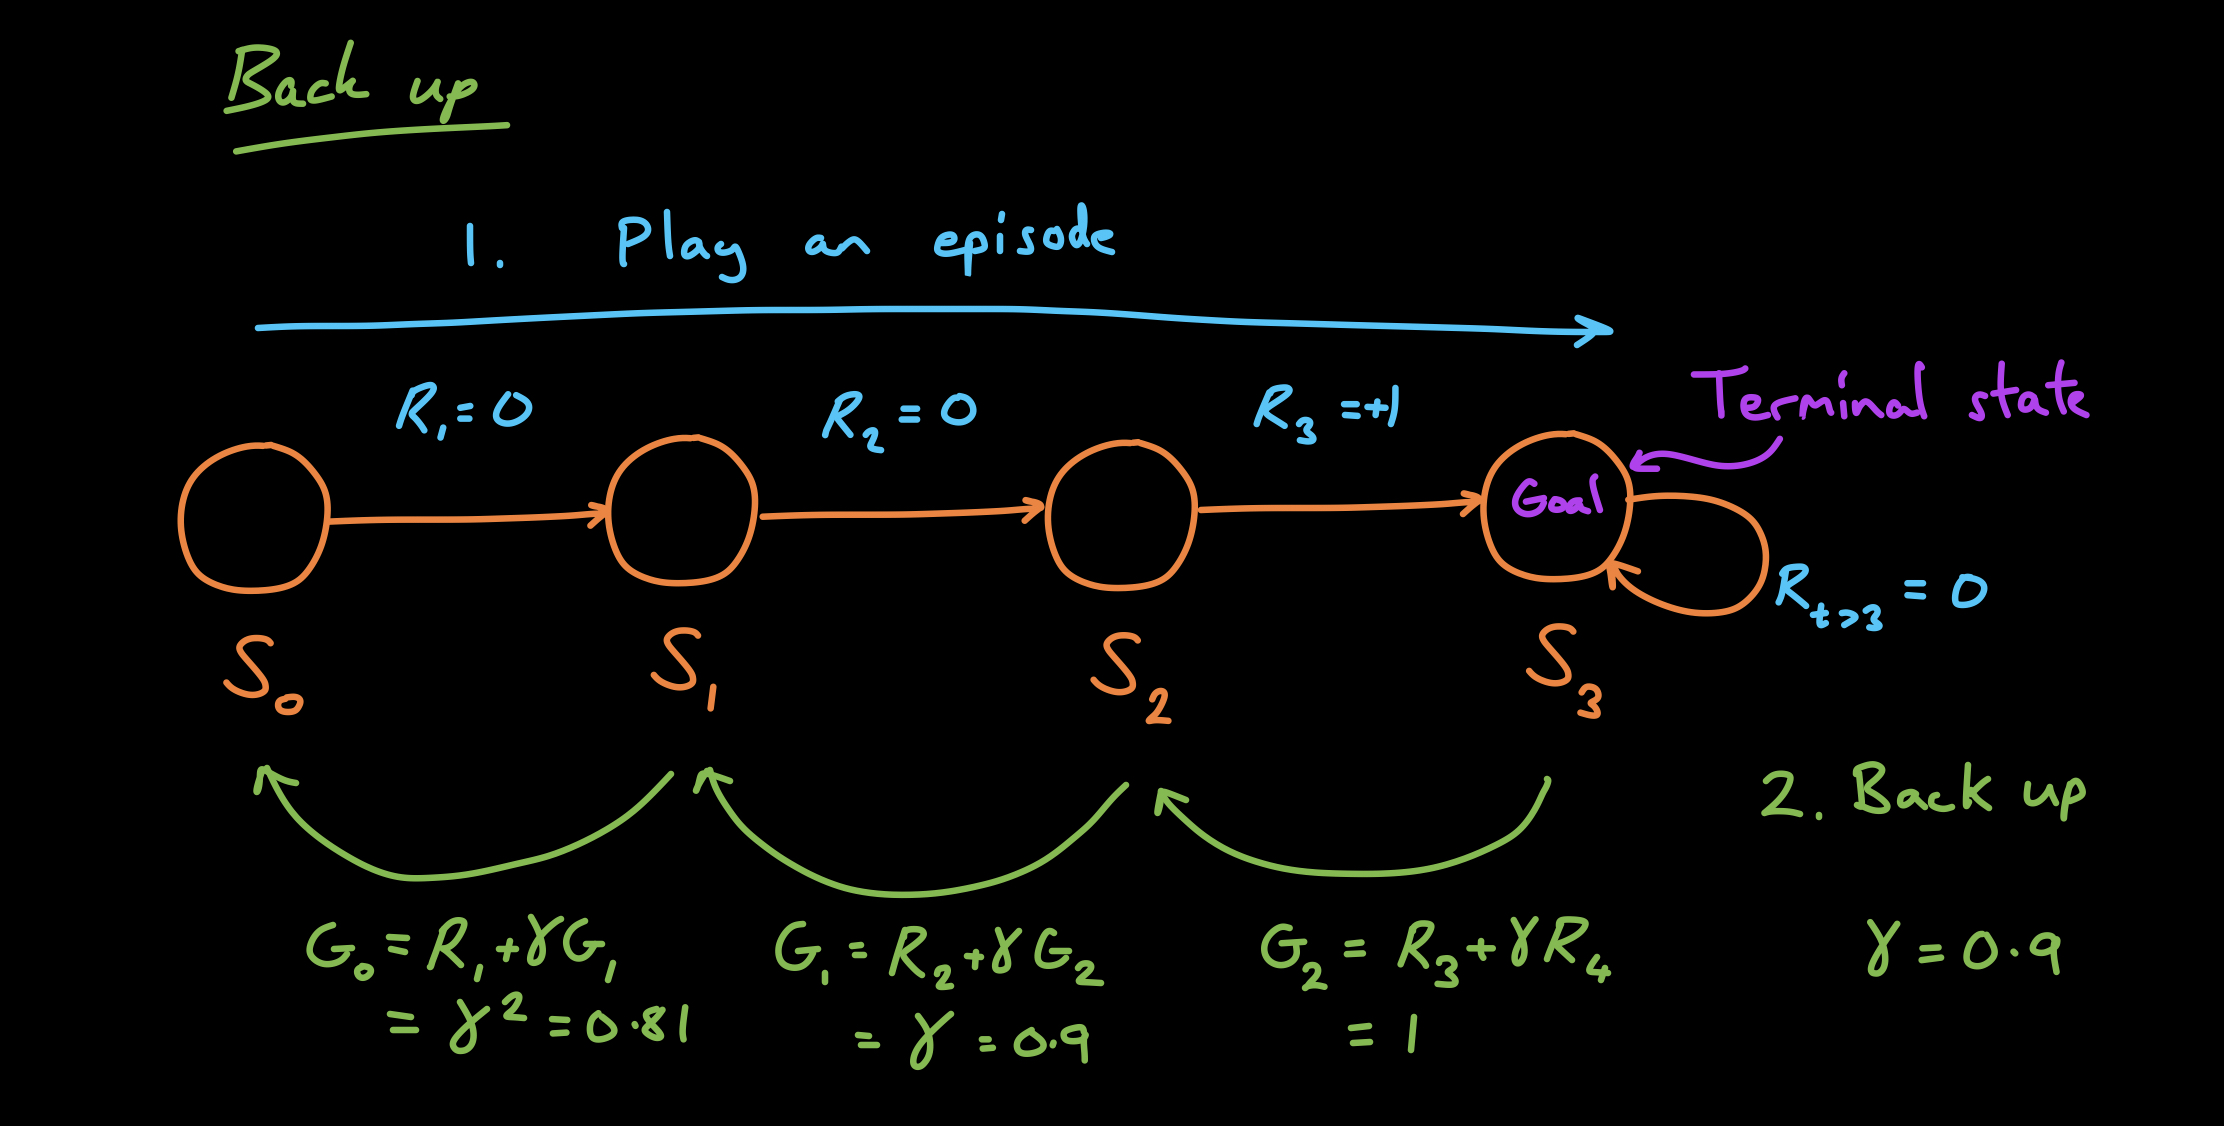 Back up
1. Play an episode
R₁ = 0
R₂ = 0
R₃ = +1
Terminal state
Goal
Rₜ>₃ = 0
S₀
S₁
S₂
S₃
2. Back up
G₀ = R₁ + γG₁
= γ² = 0.81
G₁ = R₂ + γG₂
= γ = 0.9
G₂ = R₃ + γR₄
= 1
γ = 0.9